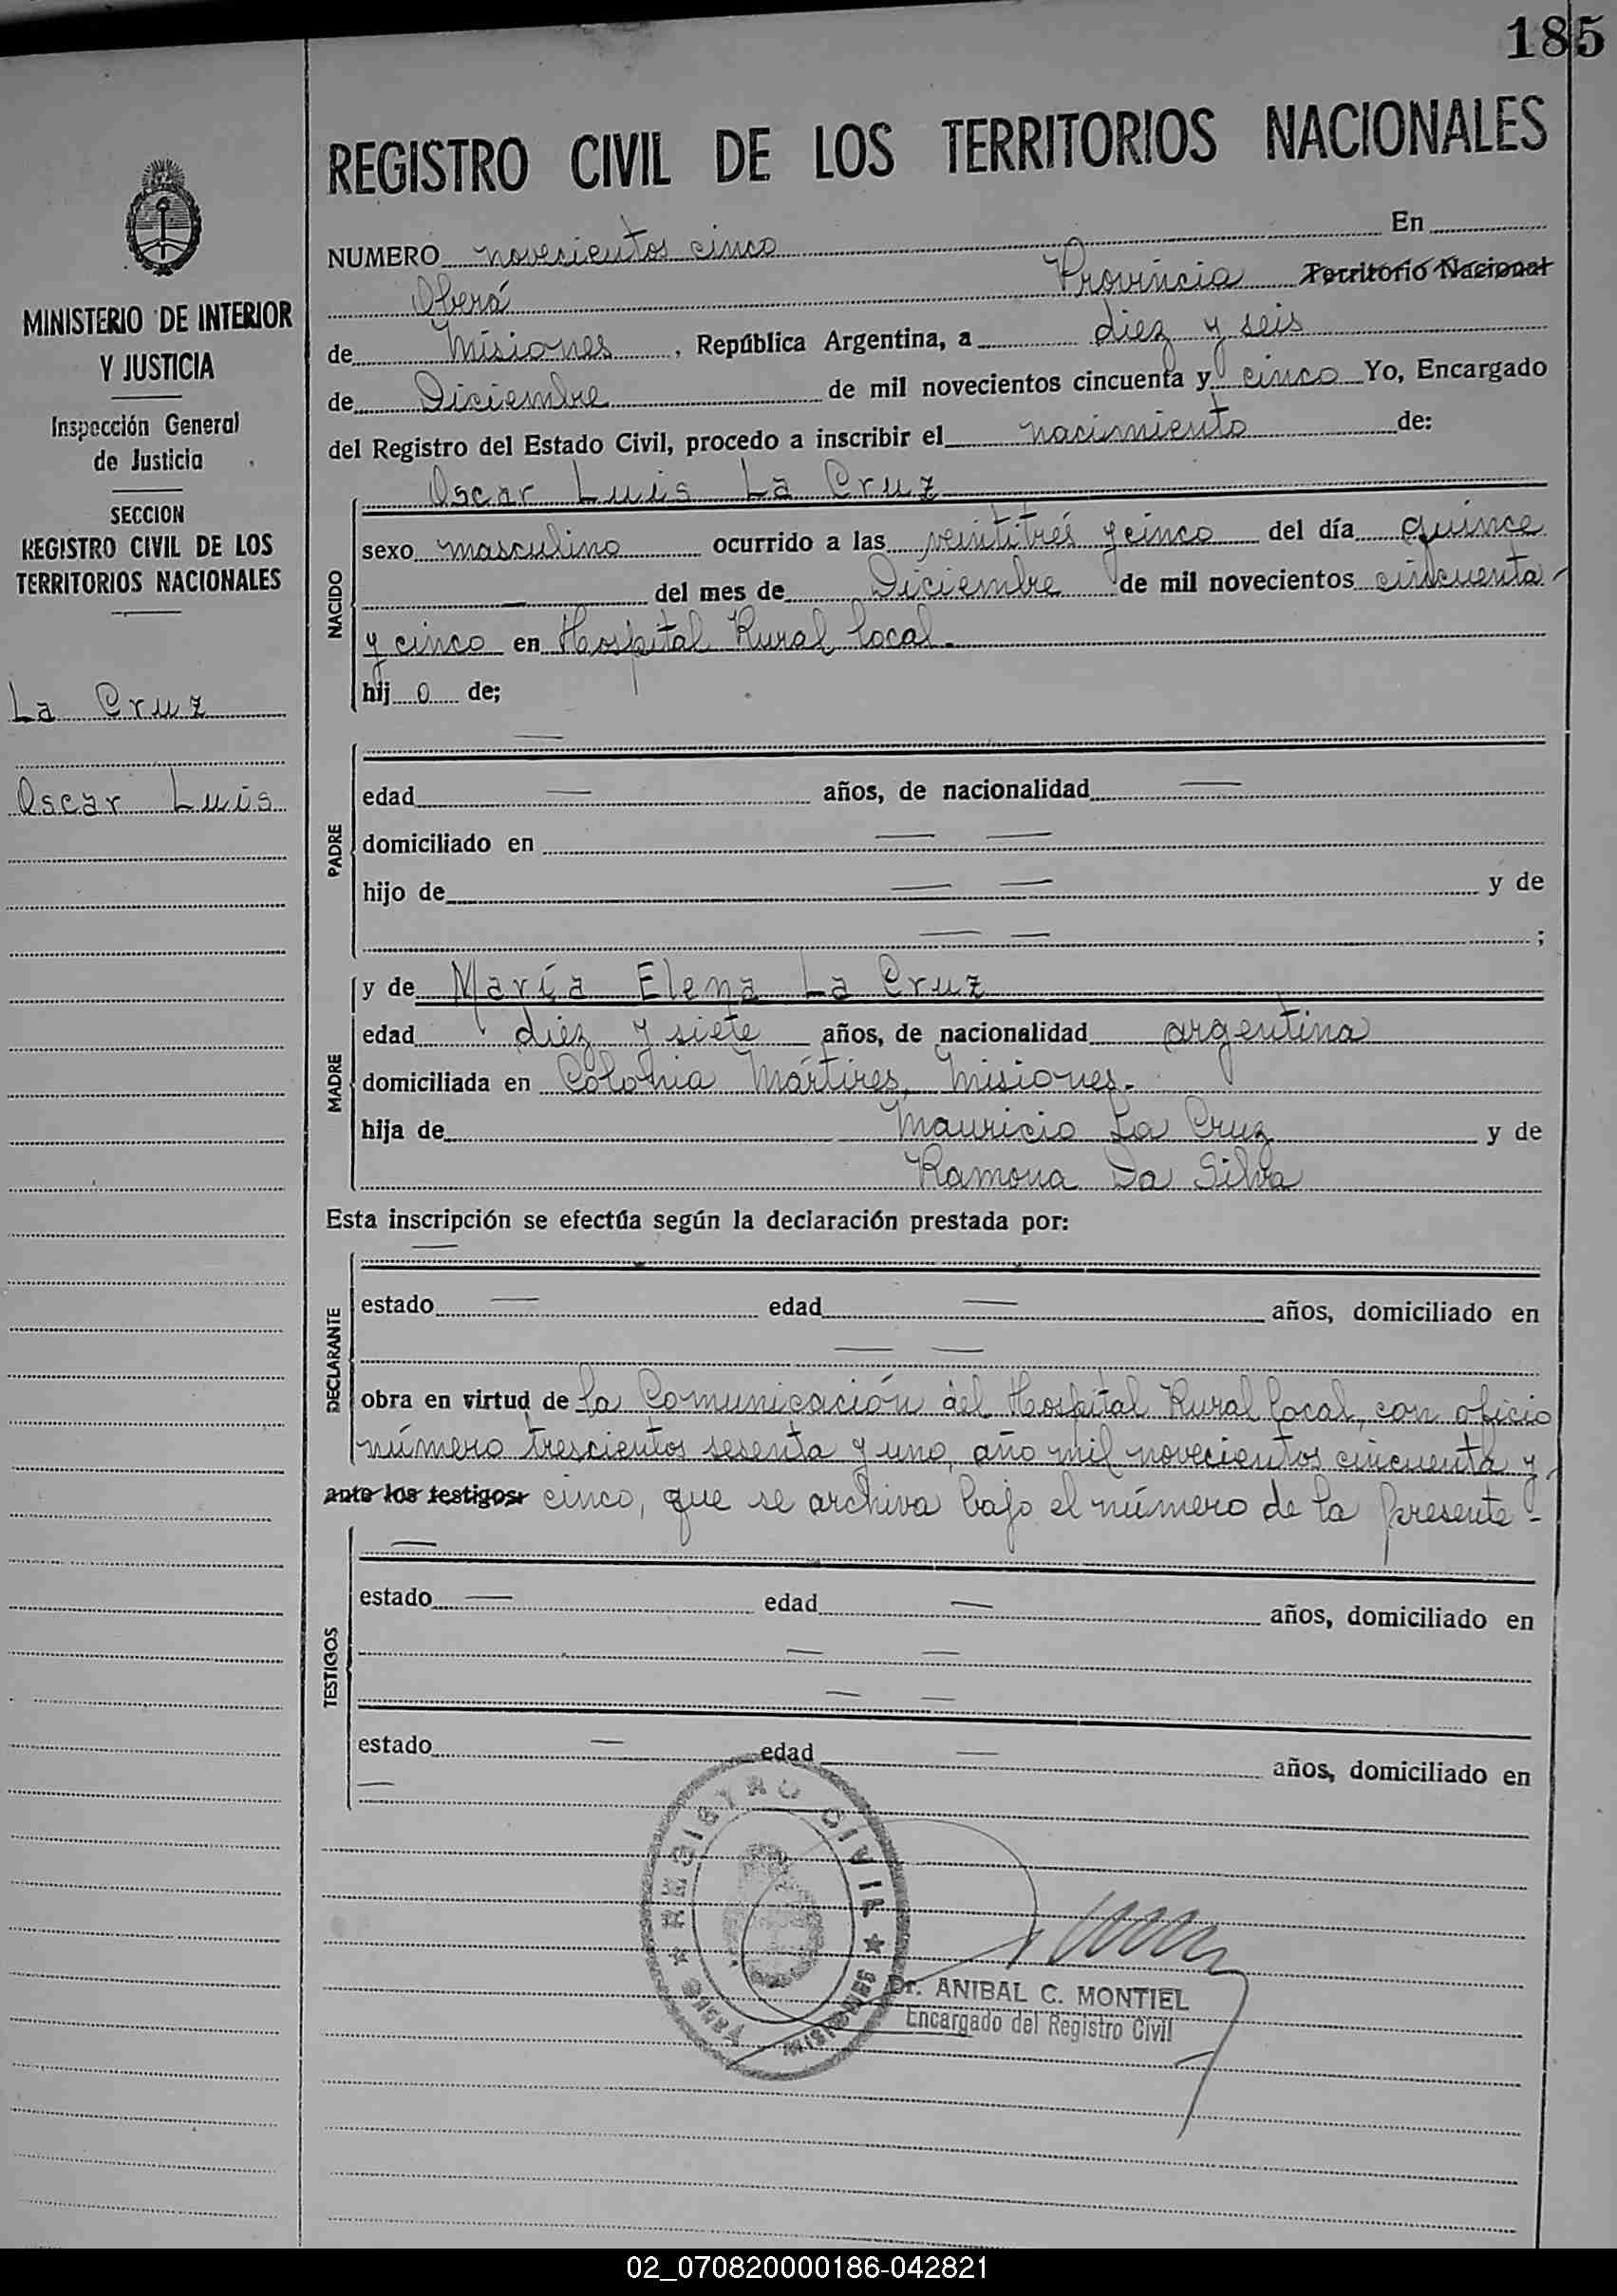 185
REGISTRO CIVIL DE LOS TERRITORIOS NACIONALES
MINISTERIO DE INTERIOR
Y JUSTICIA
Inspección General
de Justicia
SECCION
REGISTRO CIVIL DE LOS
TERRITORIOS NACIONALES
La Cruz
Oscar Luis
NUMERO novecientos cinco En
Oberá Provincia Territorio Nacional
de Misiones, República Argentina, a diez y seis
de Diciembre de mil novecientos cincuenta y cinco Yo, Encargado
del Registro del Estado Civil, procedo a inscribir el nacimiento de:
NACIDO
Oscar Luis La Cruz
sexo masculino ocurrido a las veintitrés y cinco del día quince
— del mes de Diciembre de mil novecientos cincuenta
y cinco en Hospital Rural local.
hij o de;
PADRE
—
edad — años, de nacionalidad —
domiciliado en — —
hijo de — — y de
— — ;
MADRE
y de María Elena La Cruz
edad diez y siete años, de nacionalidad argentina
domiciliada en Colonia Mártires, Misiones.
hija de Mauricio La Cruz y de
Ramona Da Silva
Esta inscripción se efectúa según la declaración prestada por:
DECLARANTE
—
estado — edad — años, domiciliado en
— —
obra en virtud de la Comunicación del Hospital Rural local, con oficio
número trescientos sesenta y uno, año mil novecientos cincuenta y
ante los testigos: cinco, que se archiva bajo el número de la presente -
TESTIGOS
—
estado — edad — años, domiciliado en
— —
— —
estado — edad — años, domiciliado en
—
REGISTRO CIVIL ★ MISIONES OBERA ★
Dr. ANIBAL C. MONTIEL
Encargado del Registro Civil
02_070820000186-042821